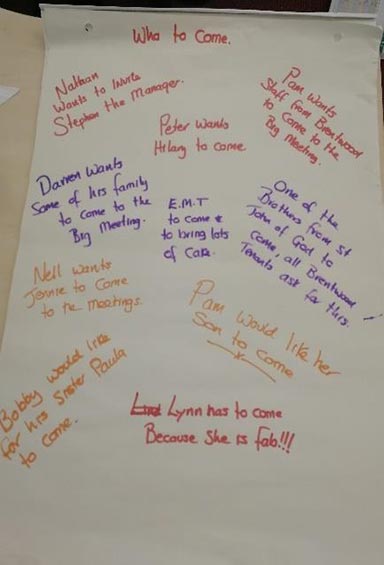 Who to Come.
Nathan
Wants to Invite
Stephen the Manager.
Pam Wants
Staff from Brentwood
to Come to the
Big Meeting.
Peter Wants
Hilary to Come
Darren Wants
Some of his family
to come to the
Big Meeting.
E.M.T
to come &
to bring lots
of Cake.
One of the
Brothers from St
John of God to
come, all Brentwood
Tenants ask for this.
Nell wants
to Come
to the meetings.
Pam Would like her
Son to come
Bobby would like
for his Sister Paula
to come.
Lynn has to come
Because She is Fab!!!